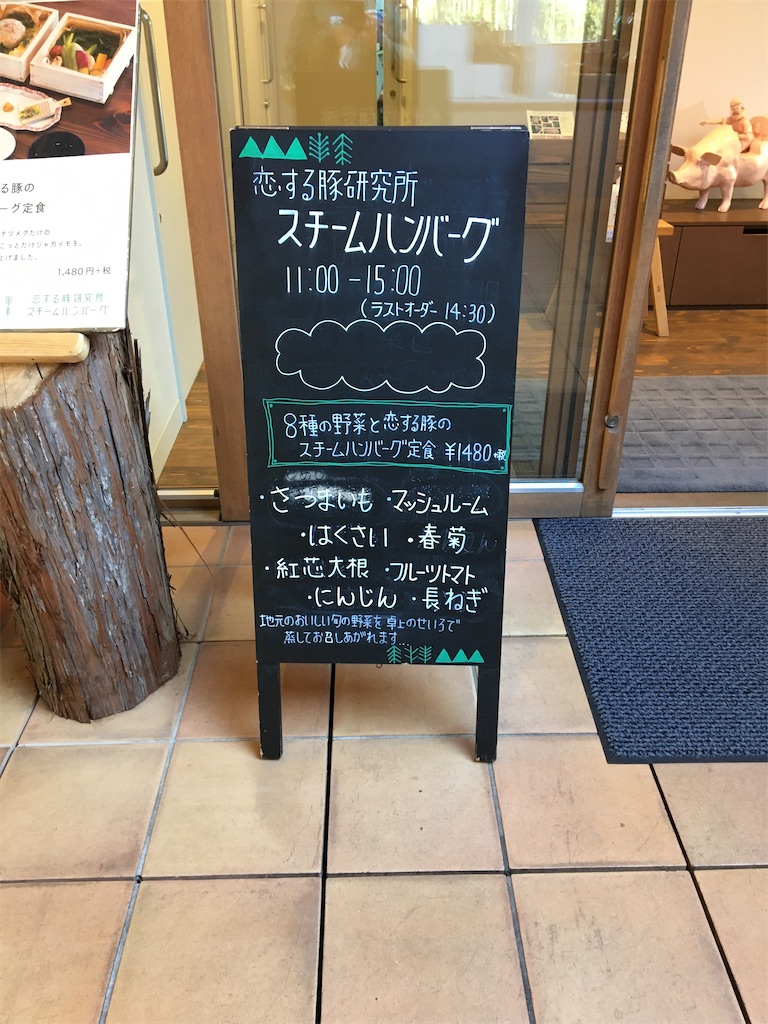 恋する豚研究所
スチームハンバーグ
11:00 - 15:00
(ラストオーダー 14:30)
8種の野菜と恋する豚の
スチームハンバーグ定食 ¥1480+税
・さつまいも ・マッシュルーム
・はくさい ・春菊
・紅芯大根 ・フルーツトマト
・にんじん ・長ねぎ
地元のおいしい旬の野菜を卓上のせいろで
蒸してお召しあがれます...
る豚の
ーグ定食
ナツメグだけの
ごろっとだけジャガイモを。
上げました。
1,480円+税
恋する豚研究所
スチームハンバーグ